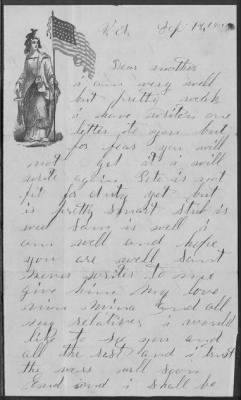 Dear mother
i am very well
but pretty weak
i have written one
letter to you but
for fear you will
not get it i will
write again Pete is not
fit for duty yet but
is pretty smart
well Sam is well i
am well and hope
you are well
writes to me
give him my love
and all
my relatives i would
like to see you and
all the rest and i trust
the war will soon
end and i shall be